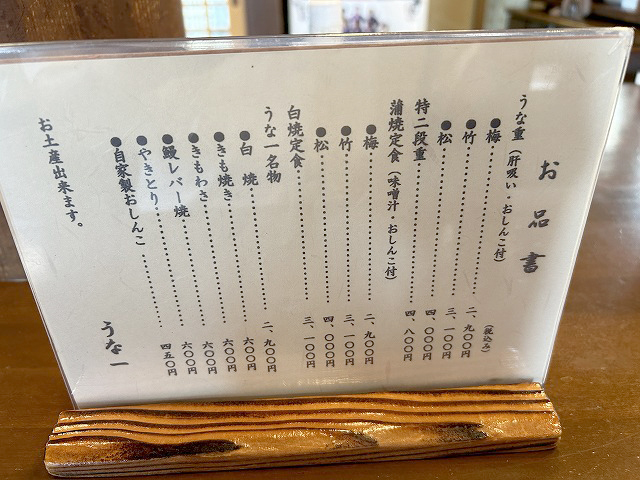 お品書
うな重（肝吸い・おしんこ付）
（税込み）
●梅…………二、九〇〇円
●竹…………三、一〇〇円
●松…………四、〇〇〇円
特二段重…………四、八〇〇円
蒲焼定食（味噌汁・おしんこ付）
●梅…………二、九〇〇円
●竹…………三、一〇〇円
●松…………四、〇〇〇円
白焼定食…………三、一〇〇円
うな一名物
●白焼…………二、九〇〇円
●きも焼き…………六〇〇円
●きもわさ…………六〇〇円
●鰻レバー焼…………六〇〇円
●やきとり…………六〇〇円
●自家製おしんこ…………四五〇円
お土産出来ます。
うな一